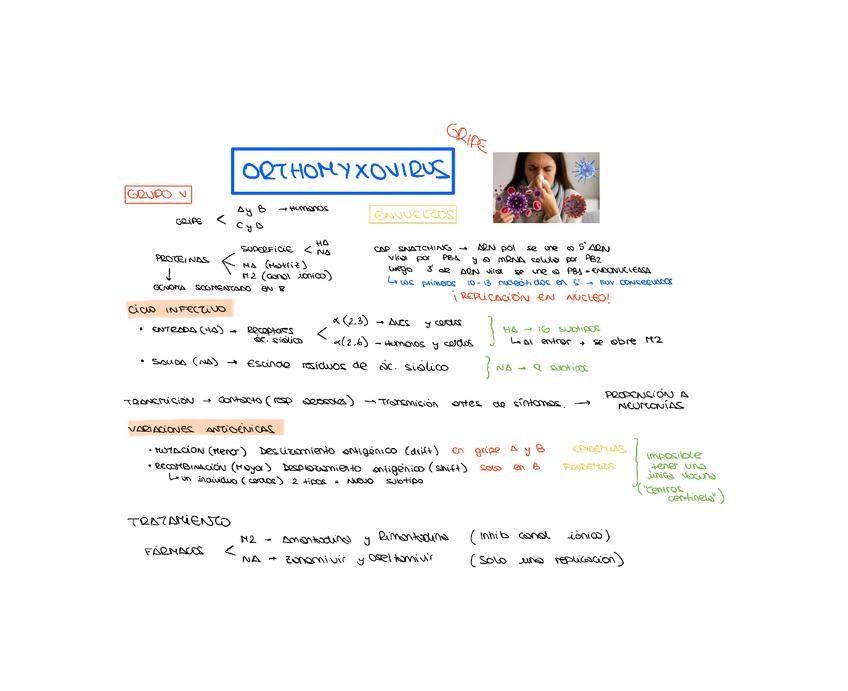 GRIPE
ORTHOMYXOVIRUS
GRUPO V
GRIPE < A y B → Humanos
C y D
ENVUELTOS
PROTEINAS < SUPERFICIE < HA
NA
MA (Matriz)
M2 (Canal iónico)
↓
GENOMA SEGMENTADO EN 8
CAP SNATCHING → ARN pol se une a 5' ARN
viral por PBA y a mRNA celular por PB2
luego 3' de ARN viral se une a PB1 = ENDONUCLEASA
↳ Los primeros 10-13 nucleótidos en 5' → muy conservados
¡REPLICACIÓN EN NÚCLEO!
CICLO INFECTIVO
• ENTRADA (HA) → Receptores ác. siálico < α(2,3) → Aves y cerdos
α(2,6) → Humanos y cerdos
HA → 16 subtipos
↳ Al entrar → se abre M2
• SALIDA (NA) → Escinde residuos de ác. siálico
NA → 9 subtipos
TRANSMISIÓN → Contacto (resp aerosoles) → Transmisión antes de síntomas. → PROPENSIÓN A NEUMONÍAS
VARIACIONES ANTIGÉNICAS
• MUTACIÓN (Menor) Deslizamiento antigénico (drift) en gripe A y B EPIDEMIAS
• RECOMBINACIÓN (Mayor) Desplazamiento antigénico (shift) solo en B PANDEMIAS
↳ un individuo (cerdos) 2 tipos = nuevo subtipo
imposible
tener una
única vacuna
("centros
centinela")
TRATAMIENTO
FÁRMACOS < M2 → Amantadina y Rimantadina (Inhib canal iónico)
NA → Zanamivir y Oseltamivir (Solo una replicación)